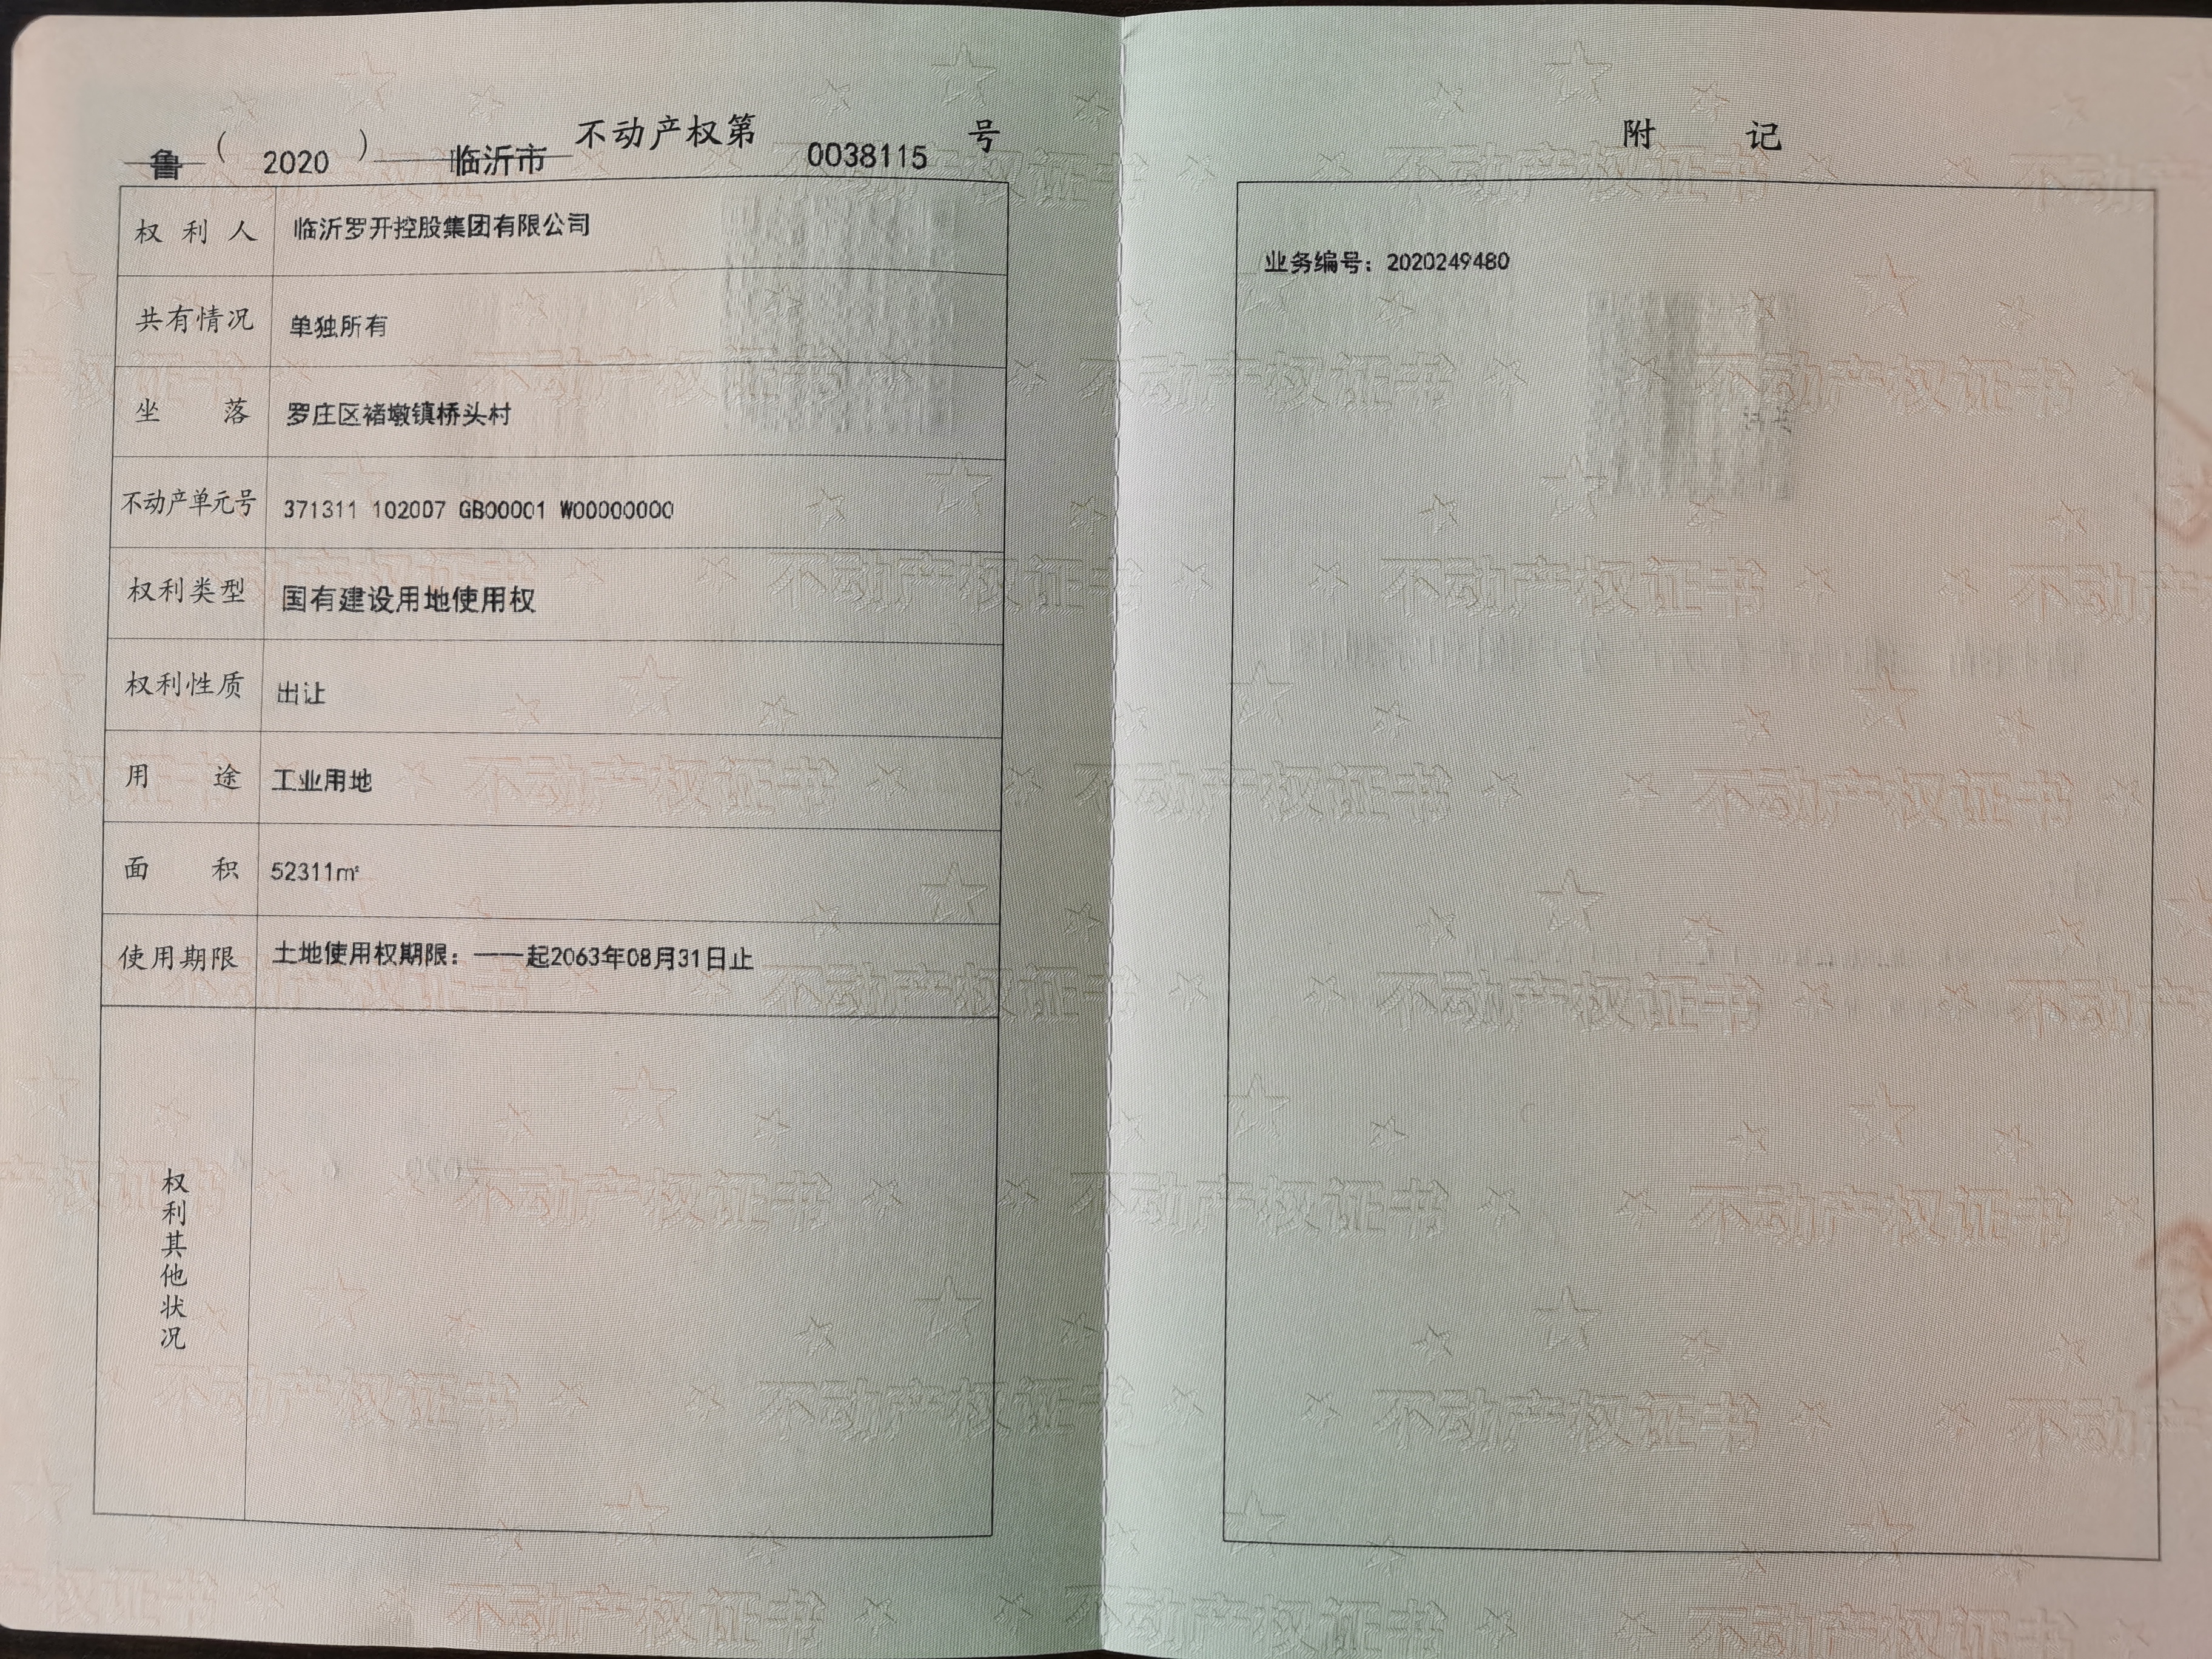 鲁（2020）临沂市不动产权第0038115号
权利人 临沂罗开控股集团有限公司
共有情况 单独所有
坐落 罗庄区褚墩镇桥头村
不动产单元号 371311 102007 GB00001 W00000000
权利类型 国有建设用地使用权
权利性质 出让
用途 工业用地
面积 52311㎡
使用期限 土地使用权期限：——起2063年08月31日止
权利其他状况
附记
业务编号：2020249480